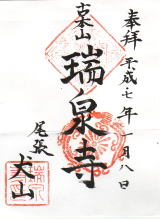 奉拝 平成七年一月八日
瑞泉寺
尾張
犬山